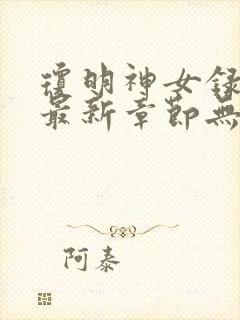 瓊明神女録
最新章節無
阿泰